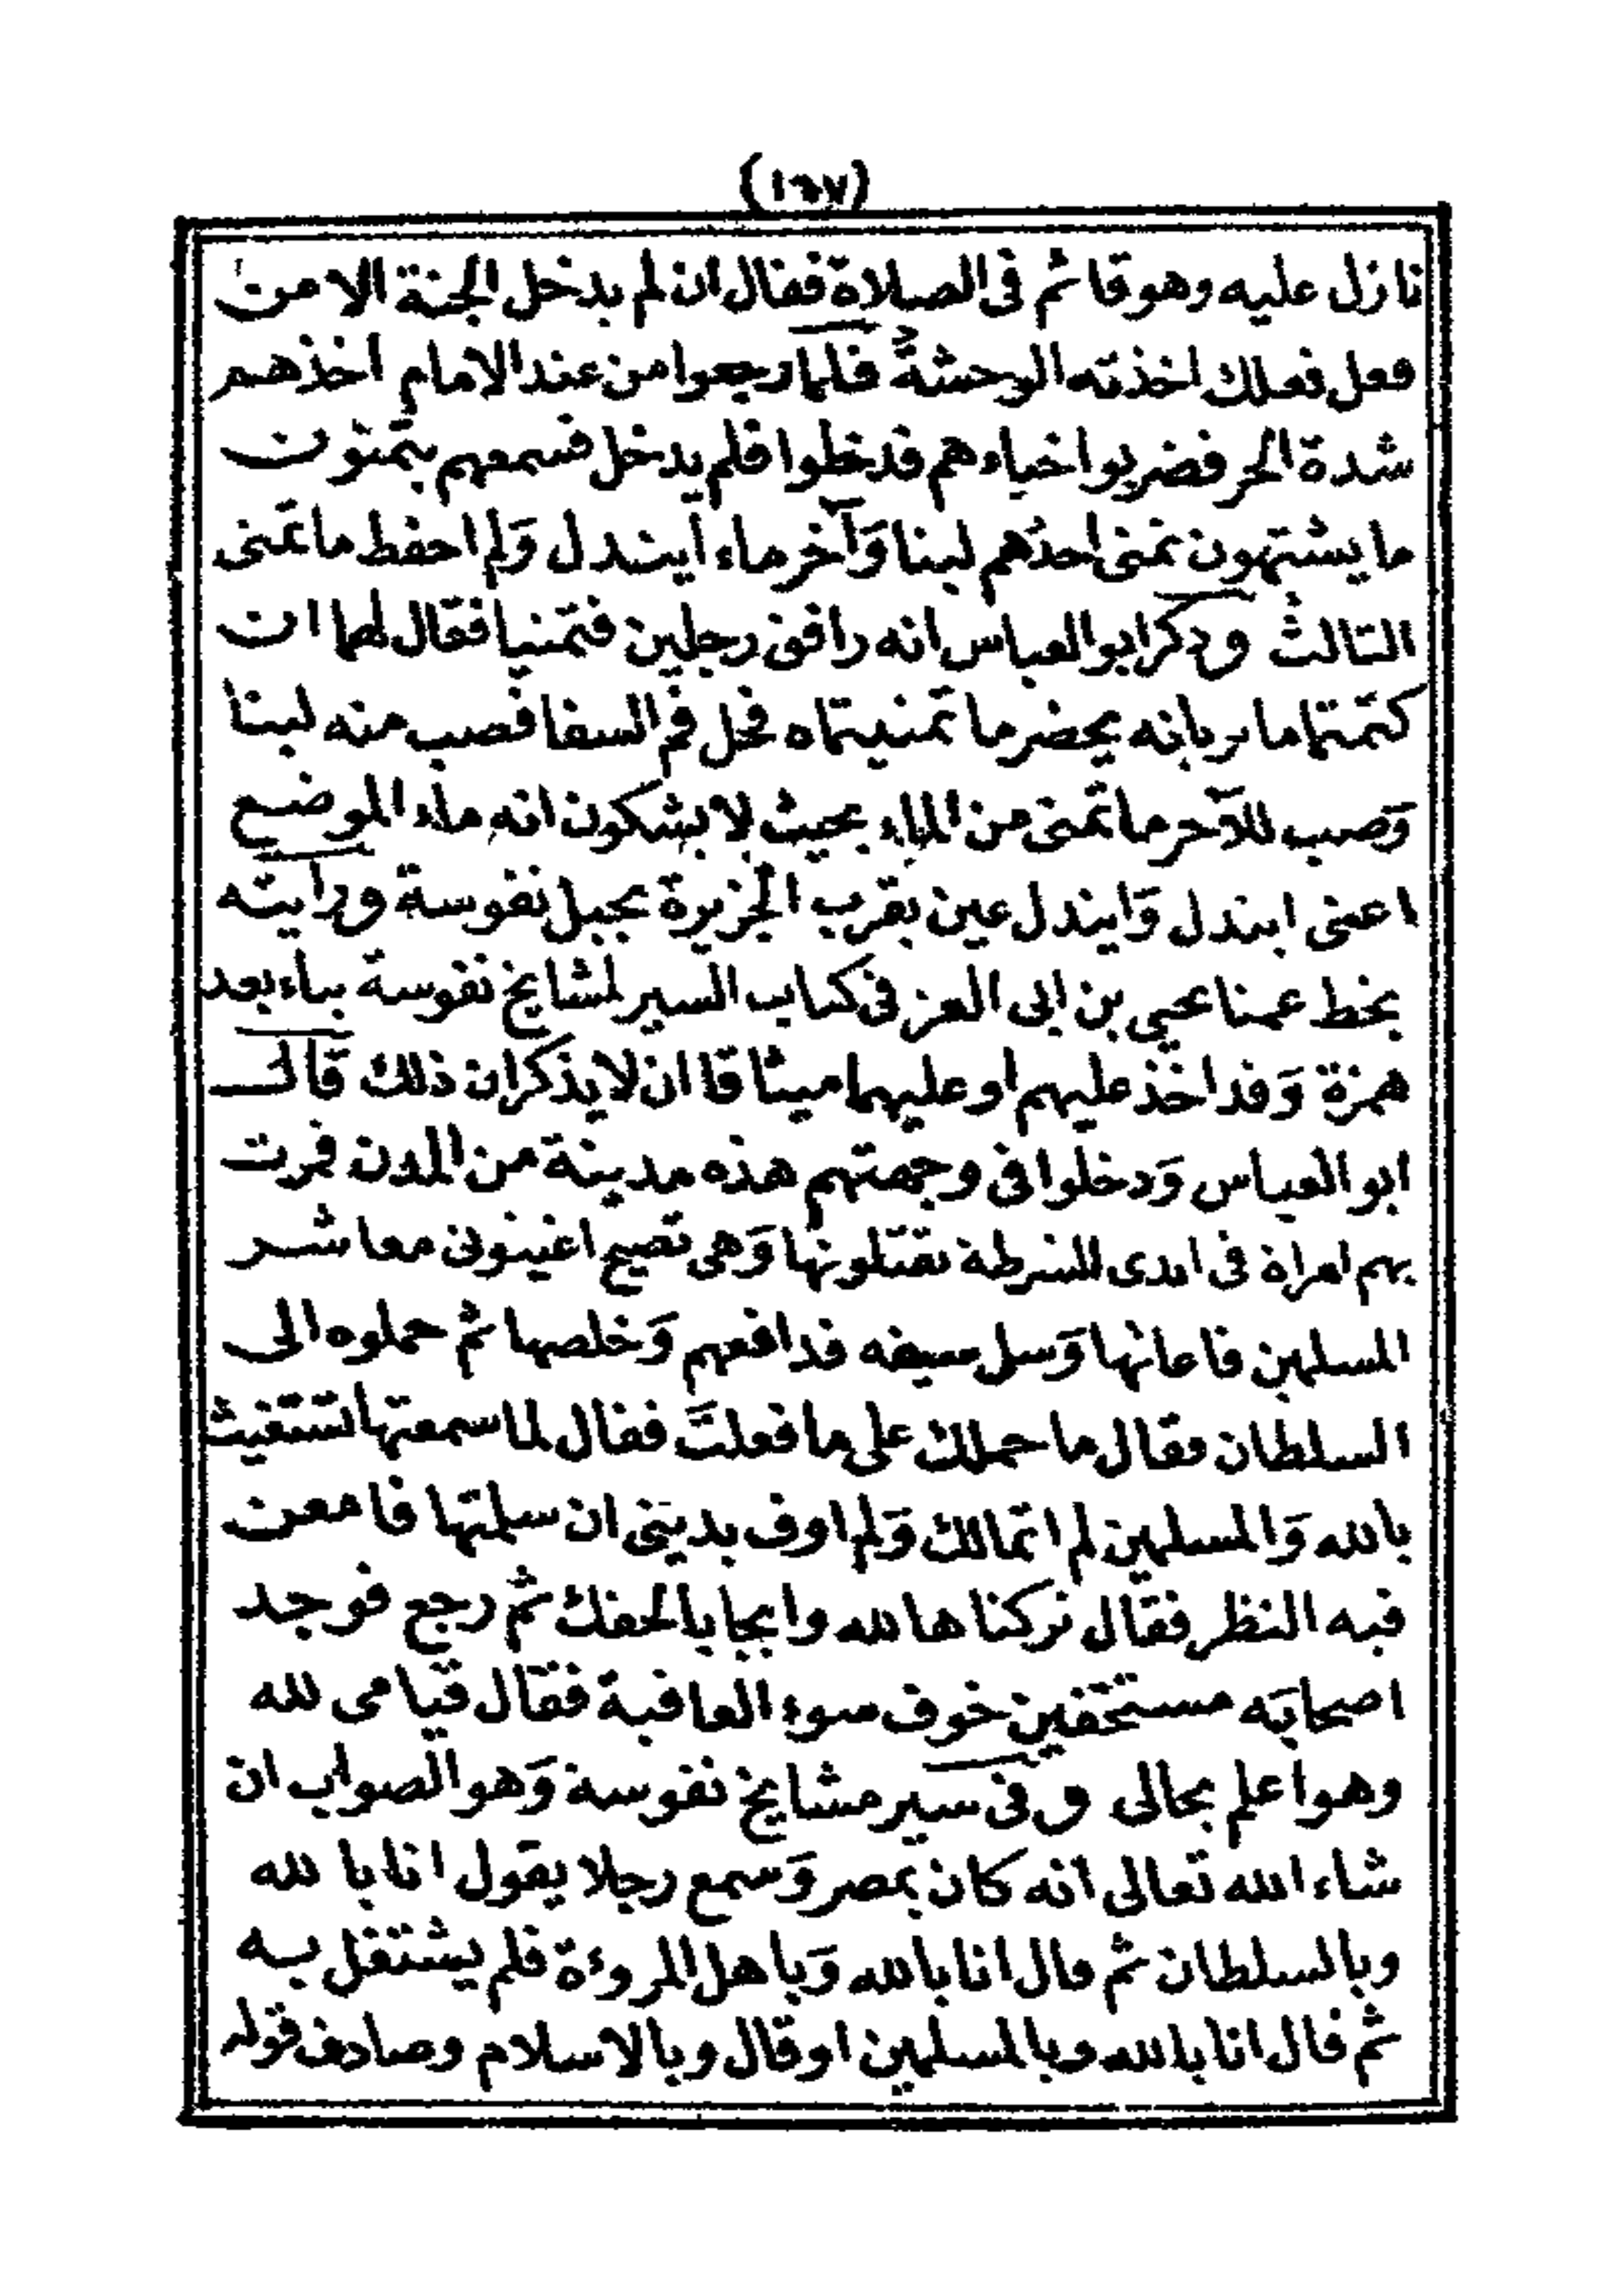 (١٦٧)
نازل عليه وهو قائم فى الصلاة فقال ان لم يدخل الجنة الا من
فعل فعلك اخذته الوحشة فلما رجعوا من عند الامام اخذهم
شدة الحر فضربوا خباءهم فدخلوا فلم يدخل فسمعهم يتمنون
ما يشتهون تمنى احدهم لبنا وَآخر ماء ايندل وَلم احفظ ما تمنى
الثالث وذكر ابو العباس انه رافق رجلين فتمنيا فقال لهما ان
كتمتما ما بربانه يحضر ما تمنيتماه فحل فم السقا فصب منه لبنا
وَصب للآخر ما تمنى من الماء بحيث لا يشكون انه ماء الموضع
اعنى ايندل وَايندل عين بقرب الجزيرة بجبل نفوسة ورايته
بخط عمنا يحيى بن ابى العز فى كتاب السير لمشايخ نفوسة بياء بعد
همزة وَقد اخذ عليهم او عليهما ميثاقا ان لا يذكران ذلك قال
ابو العباس وَدخلوا فى وجهتهم هذه مدينة من المدن فمرت
بهم امراة فى ايدى الشرطة يقتلونها وَهى تصيح اغيثونى معاشر
المسلمين فاعانها وَسل سيفه فدافعهم وَخلصها ثم حملوه الى
السلطان فقال ما حملك على ما فعلتَ فقال لما سمعتها تستغيث
بالله وَالمسلمين لم اتمالك وَلم اوف بدينى ان سلمتها فامعن
فيه النظر فقال تركناها لله وايجابا لحقك ثم رجع فوجد
اصحابه مستخفين خوف سوء العاقبة فقال قيامى لله
وهو اعلم بحالى و فى سير مشايخ نفوسة وَهو الصواب ان
شاء الله تعالى انه كان بمصر وَسمع رجلا يقول انا بالله
وبالسلطان ثم قال انا بالله وَباهل المروءة فلم يشتغل به
ثم قال انا بالله وبالمسلمين او قال وبالاسلام وصادف قوله